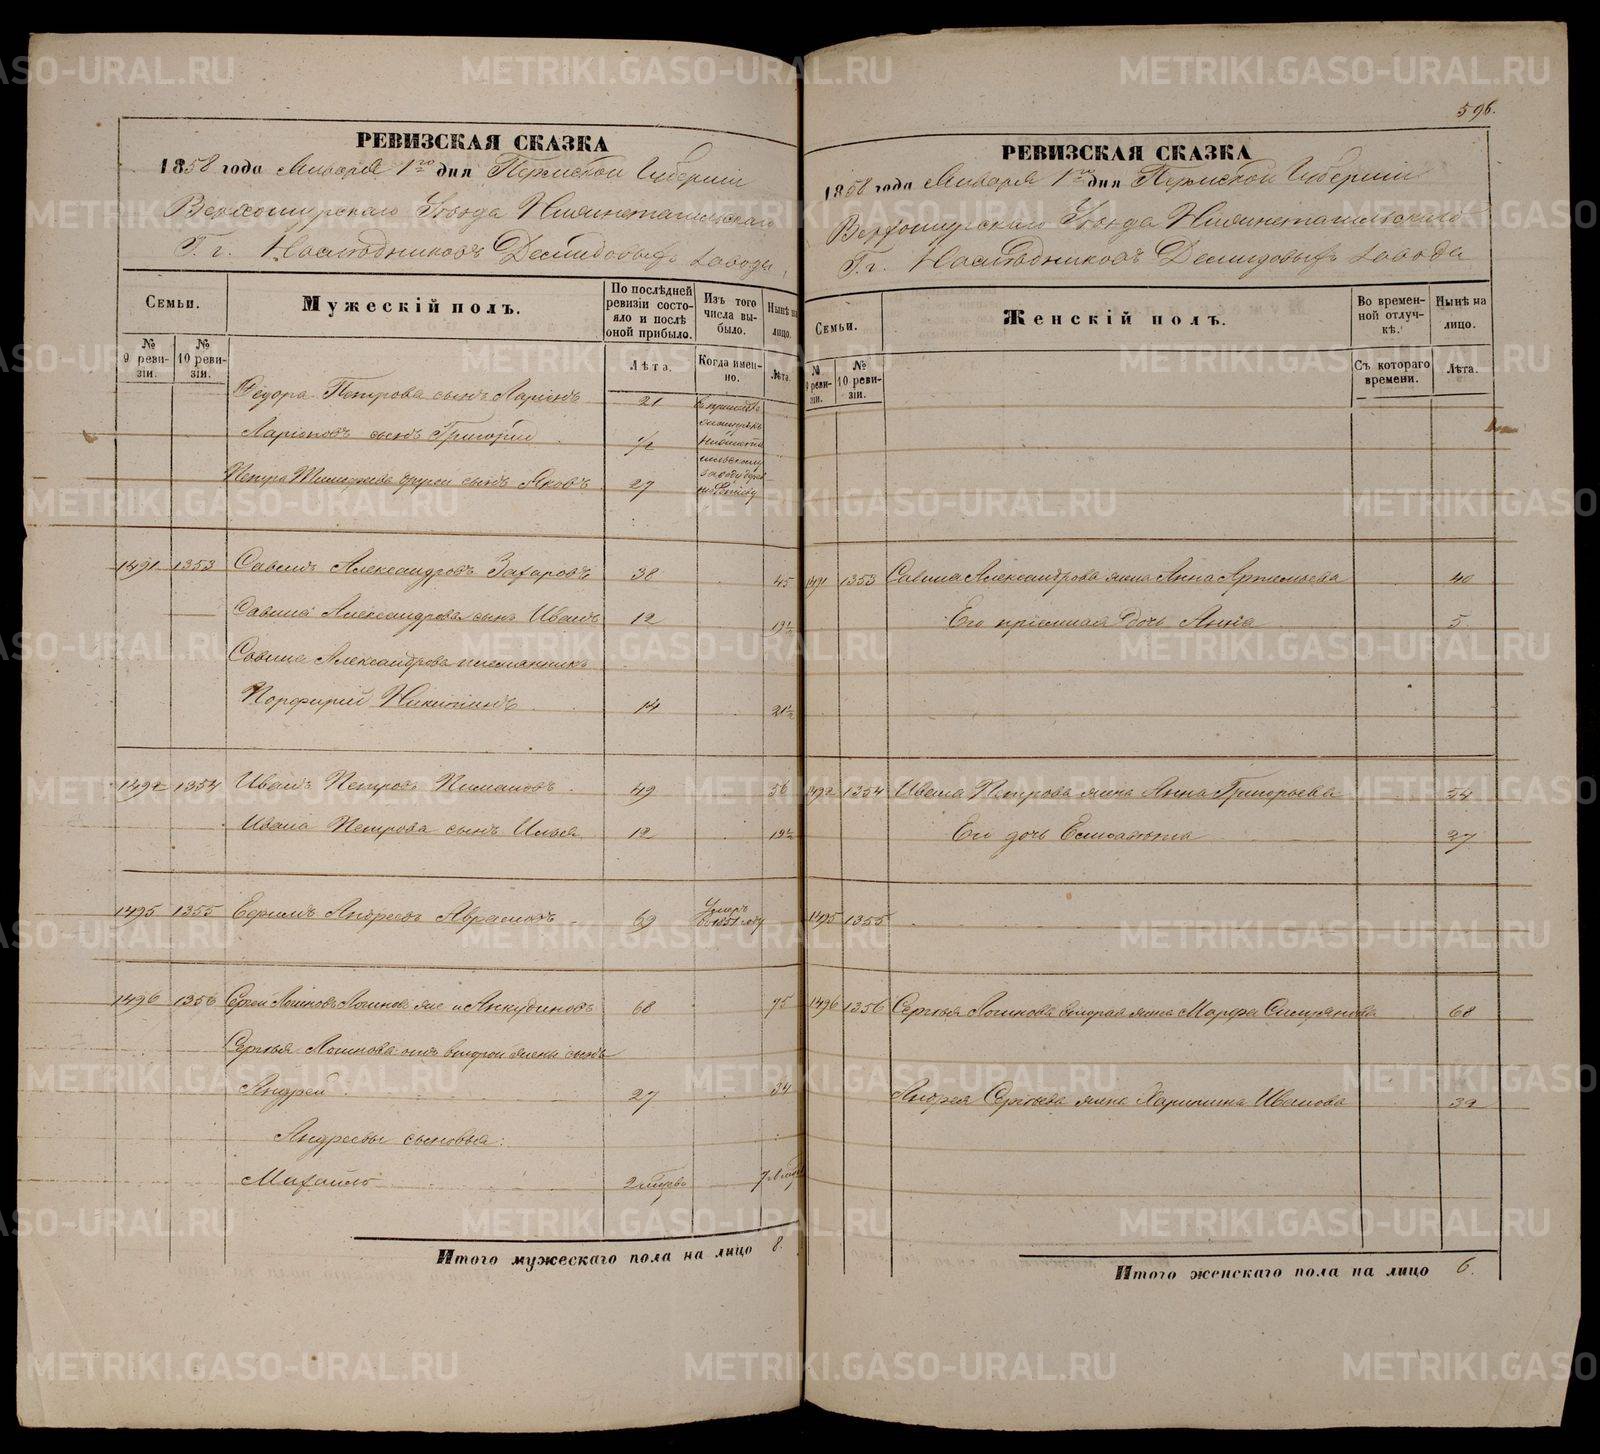 596.
РЕВИЗСКАЯ СКАЗКА
1858 года Января 1го дня Пермской Губернии
Верхотурскаго Уѣзда Нижнетагильскаго
Г. г. Наслѣдниковъ Демидовыхъ завода
Семьи.
Мужескій полъ.
По послѣдней ревизіи состояло и послѣ оной прибыло.
Изъ того числа выбыло.
Нынѣ на лицо.
№ 9 ревизіи.
№ 10 ревизіи.
Лѣта.
Когда именно.
Лѣта.
Ѳедора Петрова сынъ Ларіонъ 21
Ларіоновъ сынъ Григорій 1/2
Петра сынъ Яковъ 27
1491 1353 Савинъ Александровъ Захаровъ 38 45
Савина Александрова сынъ Иванъ 12 19½
Савина Александрова племянникъ
Порфирий Никитинъ 14 21½
1492 1354 Иванъ Петровъ Пимановъ 49 56
Ивана Петрова сынъ Илья 12 19½
1495 1355 Ефимъ Андреевъ Авраамовъ 69 Умеръ въ 1851 году
1496 1356 Сергей Логиновъ Логиновъ же и Анкудиновъ 68 75
Сергѣя Логинова отъ второй жены сынъ
Андрей 27 34
Андреевы сыновья:
Михайло
Итого мужескаго пола на лицо 8.
РЕВИЗСКАЯ СКАЗКА
1858 года Января 1го дня Пермской Губерніи
Верхотурскаго Уѣзда Нижнетагильскаго
Г. г. Наслѣдниковъ Демидовыхъ завода
Семьи.
Женскій полъ.
Во временной отлучкѣ.
Нынѣ на лицо.
№ 9 ревизіи.
№ 10 ревизіи.
Съ котораго времени.
Лѣта.
1491 1353 Савина Александрова жена Анна Артемьева 40
Его пріемная дочь Анна 5
1492 1354 Ивана Петрова жена Анна Григорьева 54
Его дочь Елисавета 27
1495 1355
1496 1356 Сергѣя Логинова вторая жена Марфа 68
Андрея Сергѣева жена Харитина Иванова 32
Итого женскаго пола на лицо 6.
METRIKI.GASO-URAL.RU